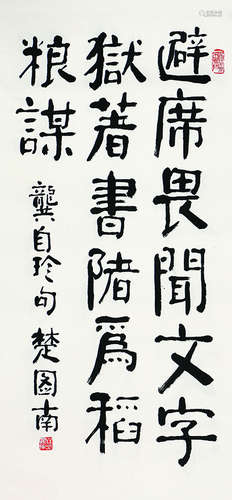 避席畏聞文字
獄著書陼為稻
粮謀
龔自珍句 楚圖南